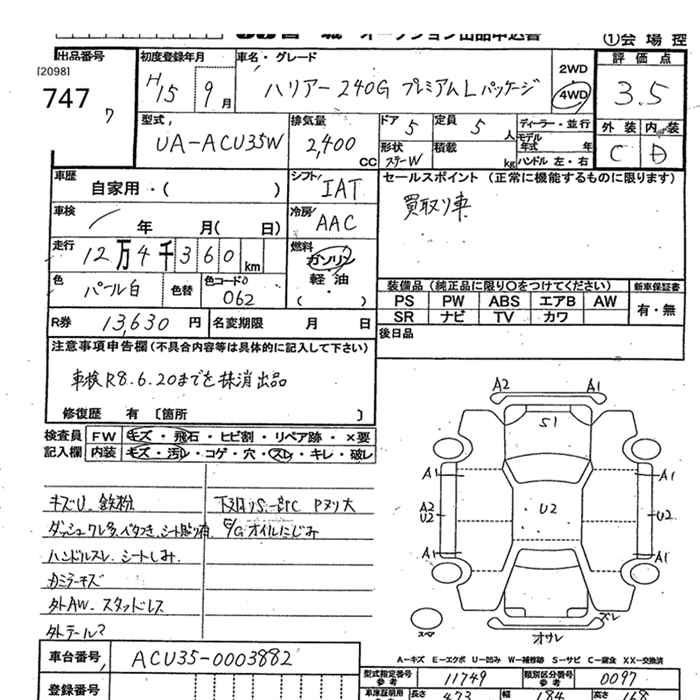 オークション出品申込書 ①会場控
出品番号 初度登録年月 車名・グレード 2WD 評価点
[2098] H15 9月 ハリアー 240G プレミアムLパッケージ 4WD 3.5
747 7
型式 排気量 ドア 定員 ディーラー・並行 外装 内装
UA-ACU35W 2,400 CC 5 5人 モデル年式 年 C D
形状 積載 kg ハンドル 左・右
車歴 自家用・( ) シフト IAT セールスポイント (正常に機能するものに限ります)
車検 / 年 月( 日) 冷房 AAC 買取り車
走行 12万4千360km 燃料 ガソリン 軽油 ( )
色 パール白 色替 色コードNo 062 装備品 (純正品に限り○をつけてください) 新車保証書
PS PW ABS エアB AW 有・無
SR ナビ TV カワ
R券 13,630円 名変期限 月 日 後日品
注意事項申告欄 (不具合内容等は具体的に記入して下さい)
車検R8.6.20までを抹消出品
修復歴 有 [箇所 ]
検査員 FW キズ・飛石・ヒビ割・リペア跡・×要
記入欄 内装 キズ・汚レ・コゲ・穴・スレ・キレ・破レ
キズU、鉄粉
ダッシュワレ多、ベタつき、シート貼り有 E/Gオイルにじみ
ハンドルスレ、シートしみ、
カミラーキズ
外AW、スタッドレス
外テール?
A2 A1
S1
A1 A1
A2 U2 U2 U2
A1 A1
スペア オサレ ズレ
A-キズ E-エクボ U-凹み W-補修跡 S-サビ C-腐食 XX-交換済
車台番号 ACU35-0003882
型式指定番号 参考 11749 類別区分番号 参考 0097
登録番号 長さ 473 幅 184 高さ 168